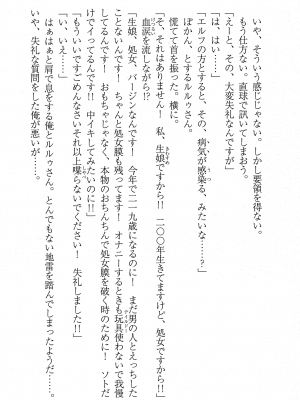 いや、そういう感じじゃない。しかし要領を得ない。
もう仕方ない。直球で訊いてしまおう。
「えーと、その、大変失礼なんですが」
「は、はい……」
「エルフの方とすると、その、病気が感染る、みたいな……？」
ぽかん、とするルルゥさん。
慌てて首を振った。横に。
「そ、それはありません！　私、生娘ですから!!　二〇〇年生きてますけど、処女ですから!!」
血涙を流しながら!?
「生娘、処女、バージンなんです！　今年で二一九歳になるのに！　まだ男の人とえっちした
ことないんです！　ちゃんと処女膜も残ってます！　オナニーするときも玩具使わないで我慢
してるんです！　おもちゃじゃなく、本物のおちんちんで処女膜を破く時のために！　ソトだ
けでイッてるんです!!　中イキしてみたいのに!!」
「もういいですごめんなさいそれ以上喋らないでください！　失礼しました!!」
「い、いえ……」
はぁはぁと肩で息をする俺とルルゥさん。とんでもない地雷を踏んでしまったようだ……。
いや、失礼な質問をした俺が悪いが……。